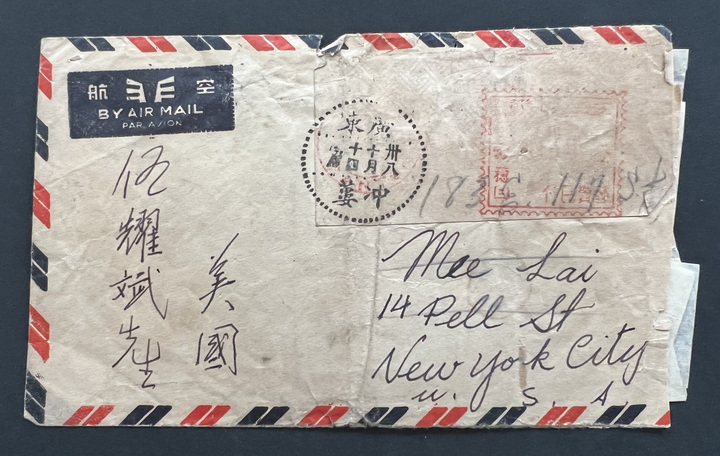 空非航
BY AIR MAIL
PAR AVION
廣東
卅八
十月
十四
沖蔞
183 E. 117 St
伍耀斌先生
美國
Mee Lai
14 Pell St
New York City
U. S. A.